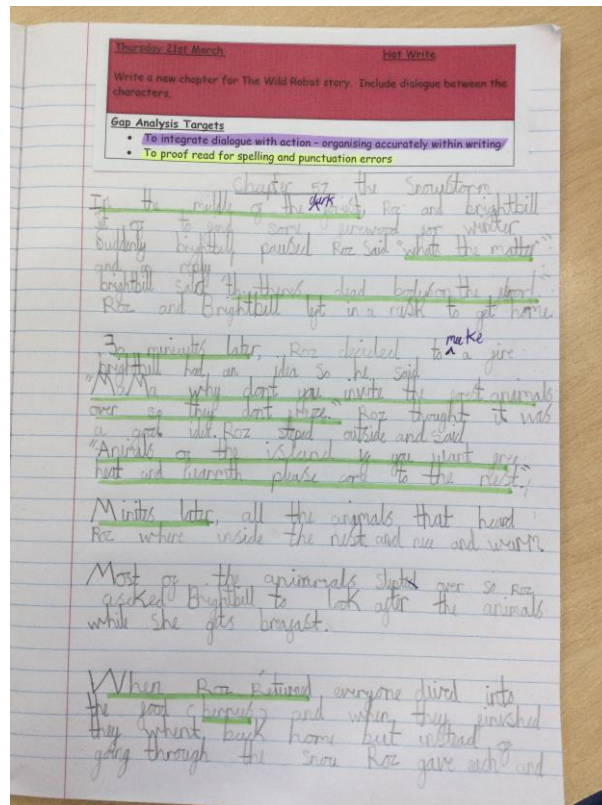 Thursday 21st March Hot Write
Write a new chapter for The Wild Robot story. Include dialogue between the
characters.
Gap Analysis Targets
• To integrate dialogue with action – organising accurately within writing
• To proof read for spelling and punctuation errors
Chapter 57 the Snowstorm
In the middle of the dark forest, Roz and brightbill
set of to find some firewood for winter
Suddenly brightbill paused Roz said "whats the matter"
and in reply
brightbill said "th theres dead bodys on the floor"
Roz and Brightbill left in a rush to get home
30 miniutes later, Roz decided to make a fire
brightbill had an idea so he said
"MaMa why dont you invite the forest animals
over so they dont freeze." Roz thought it was
a good idea. Roz steped outside and said
"Animals of the island if you want free
heat and warmth please come to the nest."
Minites later, all the animals that heard
Roz where inside the nest and nice and warm
Most of the animmals slept over so Roz
ascked Brightbill to look after the animals
while she gets breafast.
When Roz Returned everyone dived into
the food (berries) and when they finished
they whent back home but instead of
going through the snow Roz gave each and